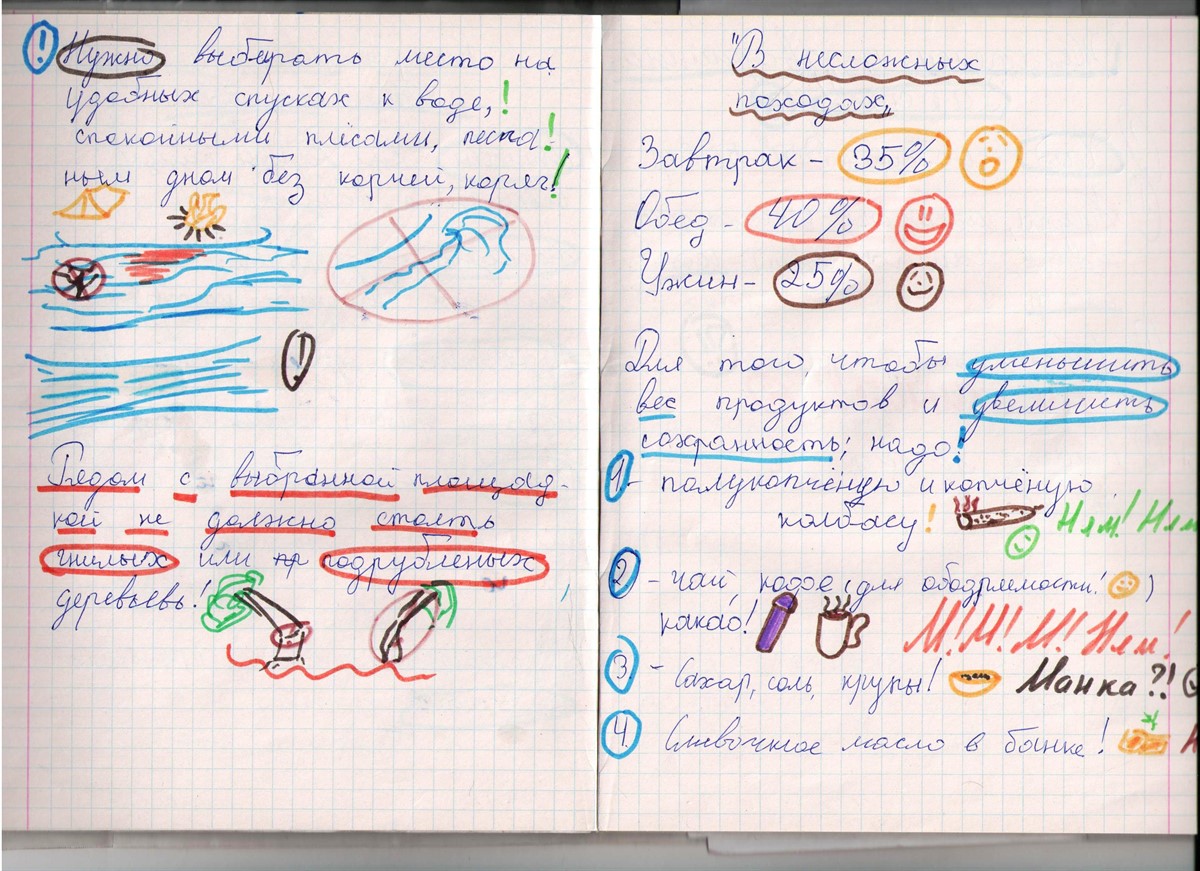 ! Нужно выбирать место на
удобных спусках к воде,!
спокойными плёсами, песча!
ным дном без корней, коряг!
!
Рядом с выбранной площад-
кой не должно стоять
гнилых или пр подрубленых
деревьевь!
"В несложных
походах„
Завтрак - 35%
Обед - 40%
Ужин - 25%
Для того, чтобы уменьшить
вес продуктов и увеличить
сохранность; надо!
1 - полукопчёную и копчёную
колбасу! Ням! Ням
2 - чай, кофе (для ободряемости! )
какао! М! М! М! Ням!
3. - Сахар, соль, крупы! Манка?!
4. Сливочное масло в банке!